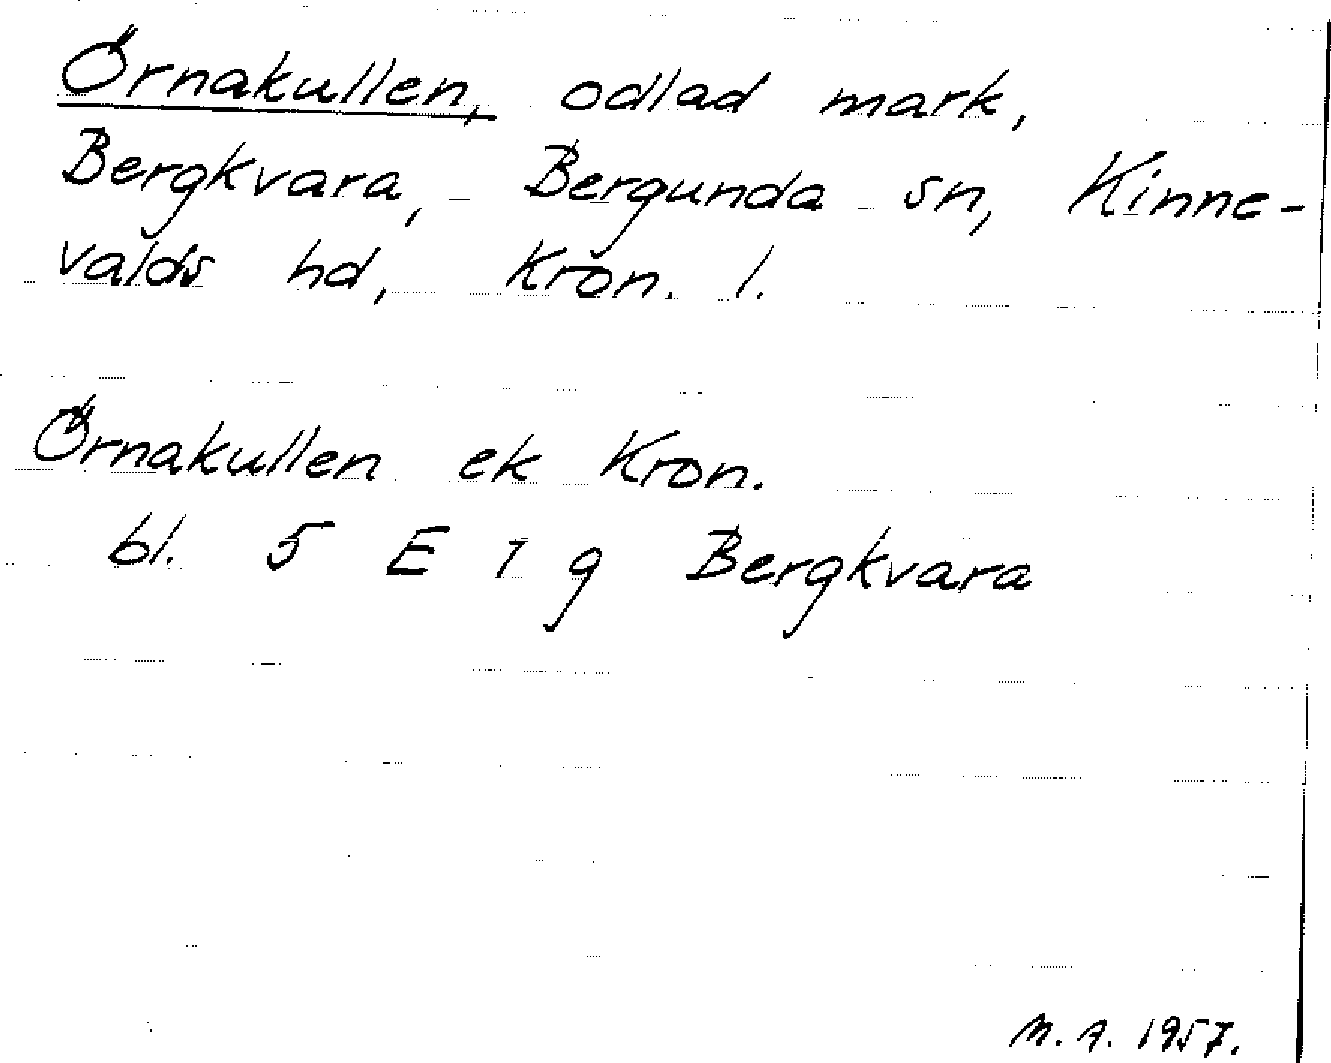 Örnakullen, odlad mark,
Bergkvara, Bergunda sn, Kinne-
valds hd, Kron. l.
Örnakullen ek Kron.
bl. 5 E 7 g Bergkvara
M. A. 1957.